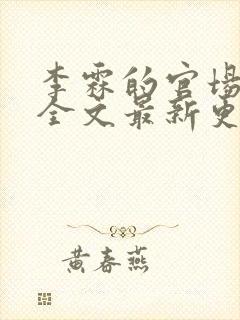 李霖的官场
全文最新更
黄春燕